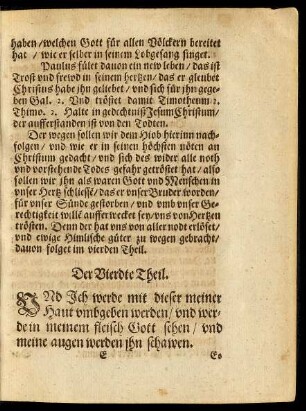 haben/welchen Gott für allen Völckern bereitet
hat / wie er selber in seinem Lobgesang singet.
Paulus fület dauon ein new leben / das ist
Trost vnd frewd in seinem hertzen / das er gleubet
Christus habe jhn geliebet / vnd sich für jhn gege-
ben Gal. 2. Vnd tröstet damit Timotheum 2.
Thimo. 2. Halte in gedechtnuß Jesum Christum /
der aufferstanden ist von den Todten.
Der wegen sollen wir dem Hiob hierinn nach-
folgen / vnd wie er in seinen höchsten nöten an
Christum gedacht / vnd sich des wider alle noth
vnd vorstehende Todes gefahr getröstet hat / also
sollen wir jhn als waren Gott vnd Menschen in
vnser Hertz schliessē / das er vnser Bruder worden /
für vnser Sünde gestorben / vnd vmb vnser Ge-
rechtigkeit willē aufferwecket sey / vns von Hertzen
trösten. Denn der hat vns von aller nodt erlöset /
vnd ewige Himlische güter zu wegen gebracht /
dauon folget im vierden Theil.
Der Vierdte Theil.
VNd Ich werde mit dieser meiner
Haut vmbgeben werden / vnd wer-
de in meinem fleisch Gott sehen / vnd
meine augen werden jhn schawen.
E Es